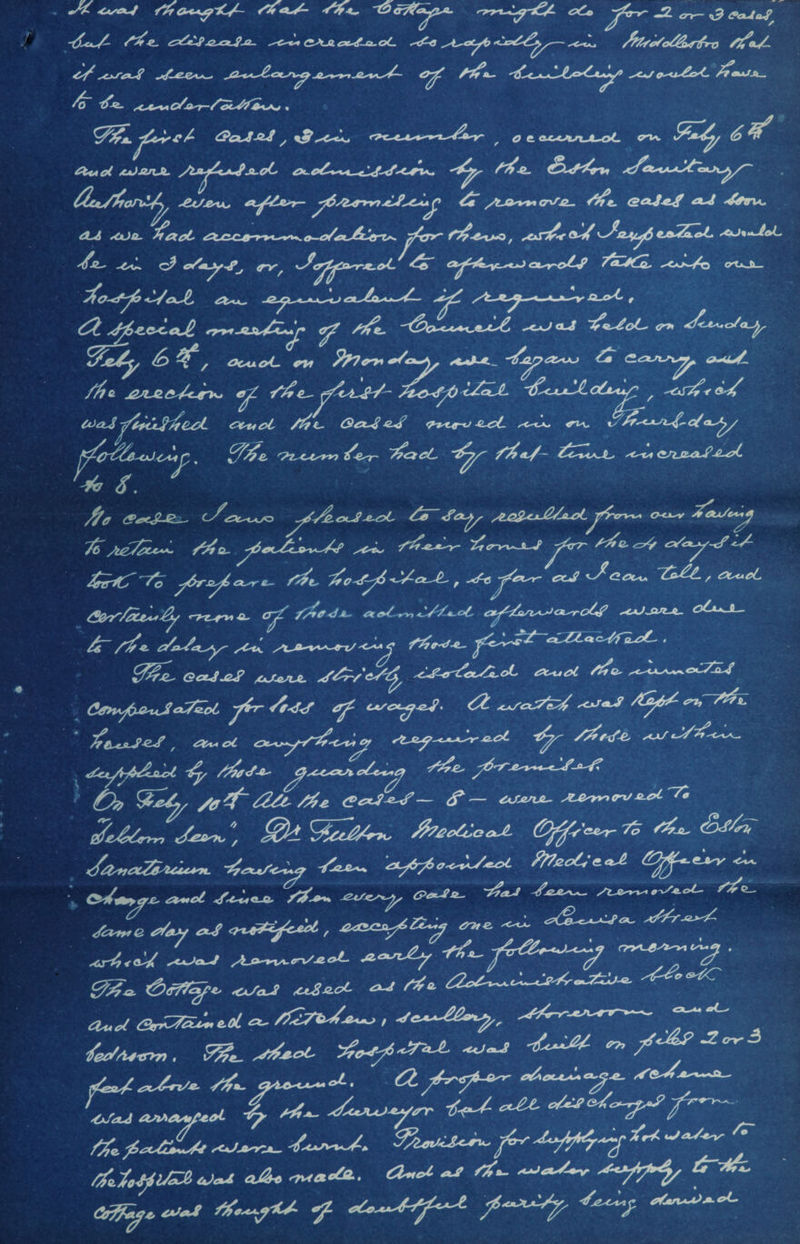 It was thought that the Cottage might do for 2 or 3 cases,
but the disease increased so rapidly in Middlesbro that
it was seen enlargement of the building would have
to be undertaken.
The first cases, 3 in number, occurred on Feby 6th
and were refused admission by the Eston Sanitary
Authority, even after promising to remove the cases as soon
as we had accommodation for them, which I expected would
be in 3 days, or, I offered to afterwards take into our
hospital an equivalent if required.
A special meeting of the Council was held on Sunday
Feby 6th, and on Monday we began to carry out
the erection of the first hospital building, which
was finished and the cases moved in on Thursday
following. The number had by that time increased
to 8.
No case I am pleased to say resulted from our having
to retain the patients in their homes for the 4 days it
took to prepare the hospital, so far as I can tell, and
certainly none of those admitted afterwards were due
to the delay in removing those first attacked.
The cases were strictly isolated and the inmates
compensated for loss of wages. A watch was kept on the
houses, and anything required by those within
supplied by those guarding the premises.
On Feby 10th All the cases – 8 – were removed to
"Seldom Seen", Dr Fulton Medical Officer to the Eston
Sanatorium having been appointed Medical Officer in
charge and since then every case has been removed the
same day as notified, excepting one in Louisa Street
which was removed early the following morning.
The Cottage was used as the Administrative block
and contained a kitchen, scullery, storeroom and
bedroom. The shed hospital was built on piles 2 or 3
feet above the ground. A proper drainage scheme
was arranged by the Surveyor but all discharges from
the patients were burnt. Provision for supplying hot water to
the hospital was also made. And as the water supply to the
cottage was thought of doubtful purity being derived